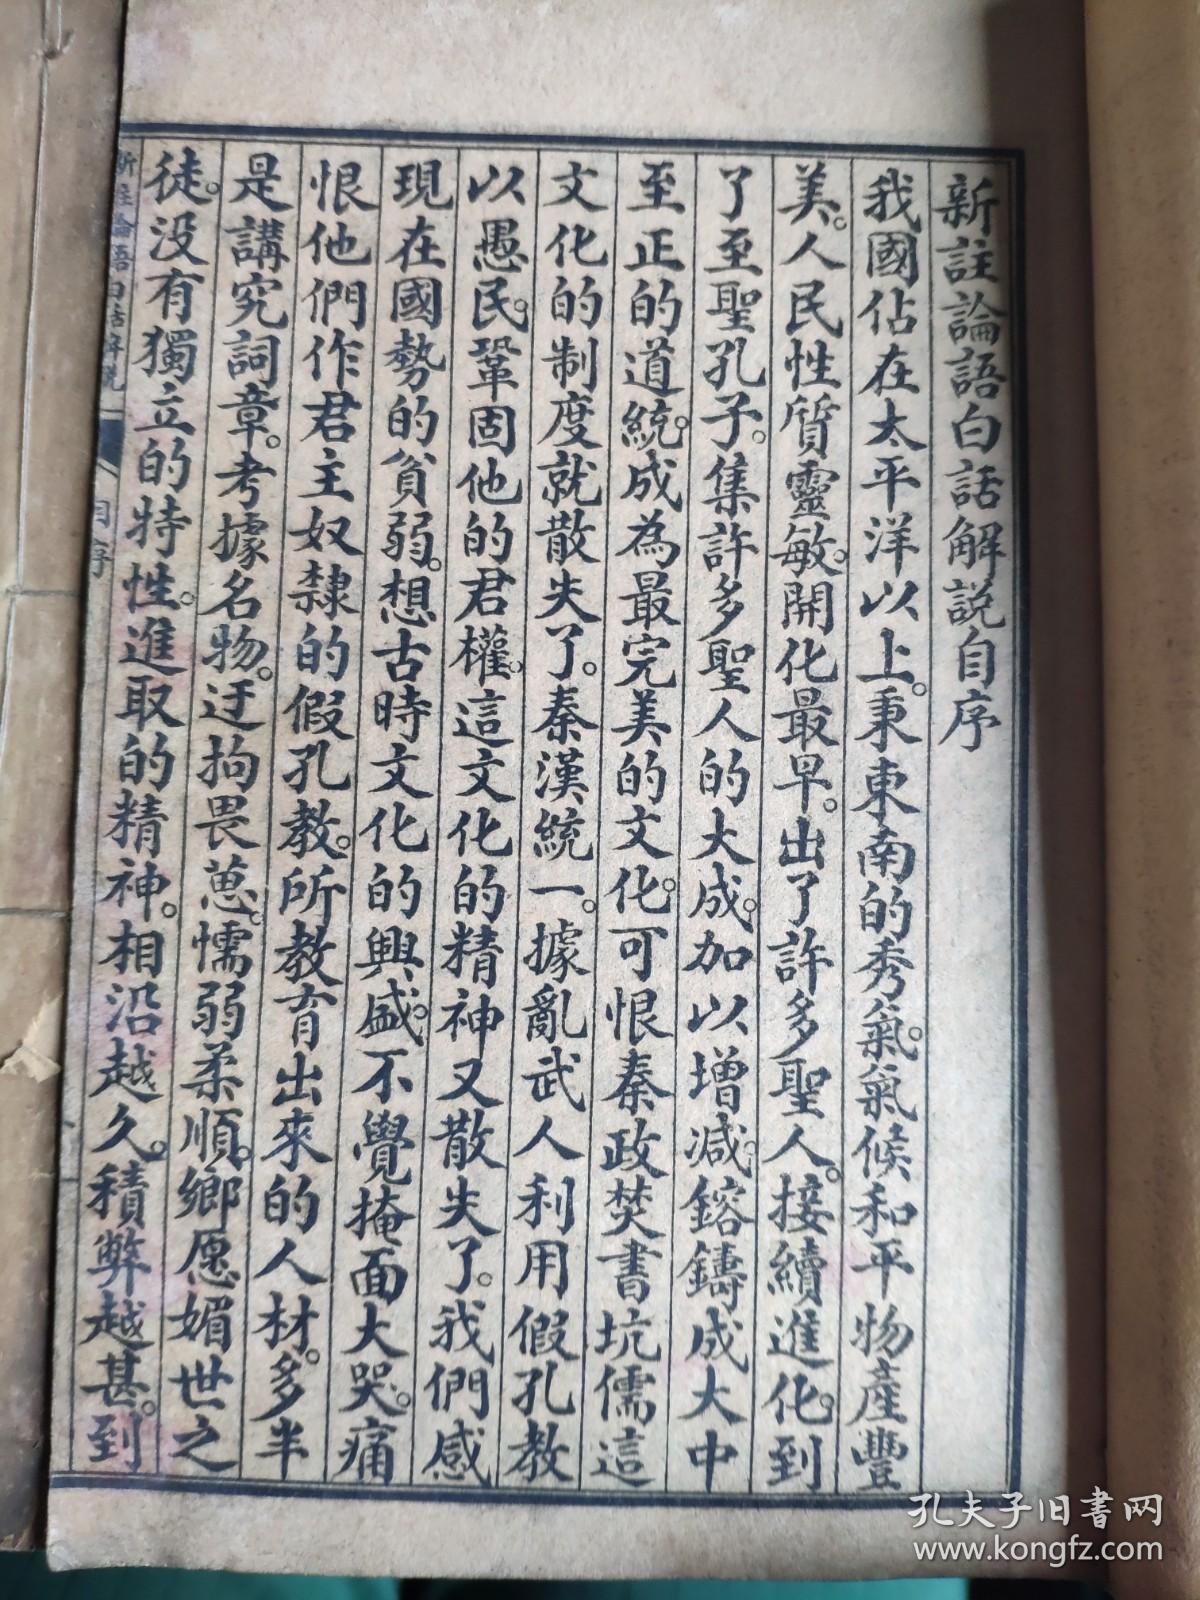 新註論語白話解說自序
我國佔在太平洋以上。秉東南的秀氣。氣候和平物產豐
美。人民性質靈敏。開化最早。出了許多聖人。接續進化。到
了至聖孔子。集許多聖人的大成。加以增減。鎔鑄成大中
至正的道統。成為最完美的文化。可恨秦政焚書坑儒這
文化的制度就散失了。秦漢統一。據亂武人利用假孔教
以愚民。鞏固他的君權。這文化的精神又散失了。我們感
現在國勢的貧弱。想古時文化的興盛。不覺掩面大哭。痛
恨他們作君主奴隸的假孔教。所教育出來的人材。多半
是講究詞章。考據名物。迂拘畏葸。懦弱柔順。鄉愿媚世之
徒。没有獨立的特性。進取的精神。相沿越久。積弊越甚。到
新註論語白話解說
自序
孔夫子旧书网
www.kongfz.com